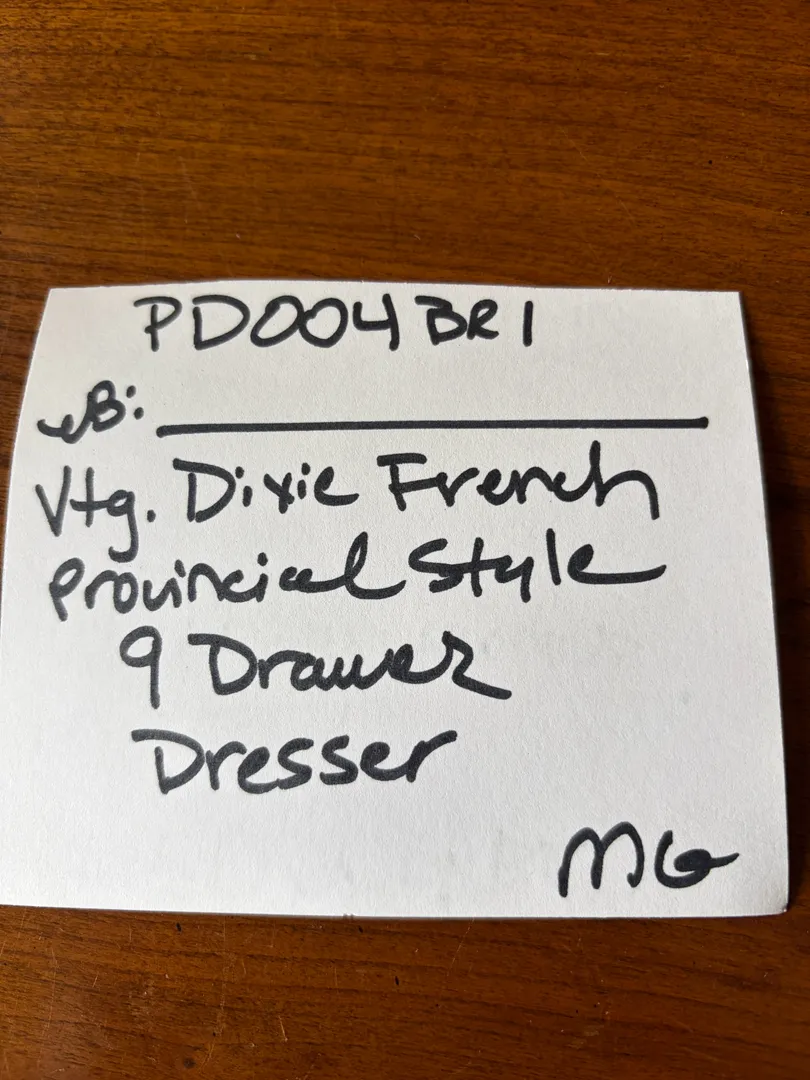 PD004BR1
eB: ____________
Vtg. Dixie French
Provincial Style
9 Drawer
Dresser
MG